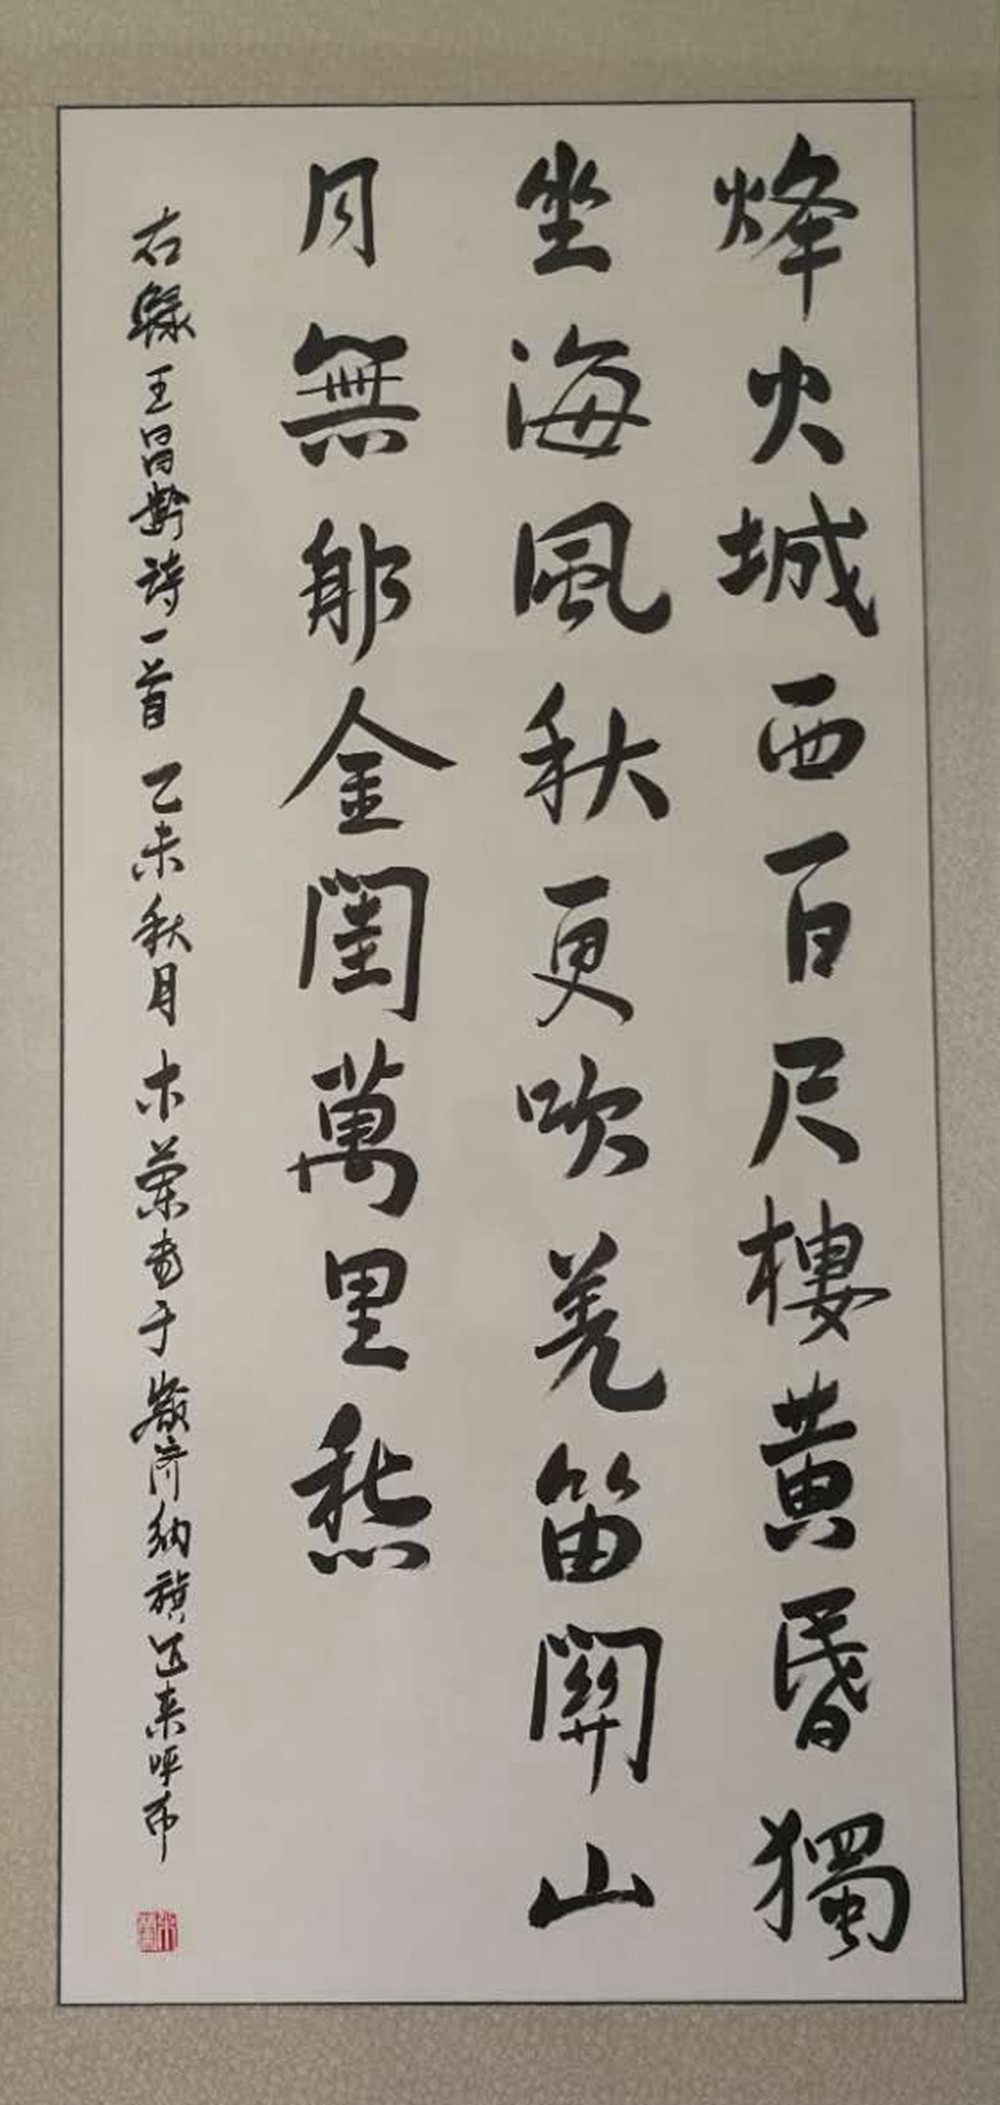 烽火城西百尺樓黃昏獨
坐海風秋更吹羌笛關山
月無那金閨萬里愁
右錄王昌齡詩一首 乙未秋月 木蘭書于